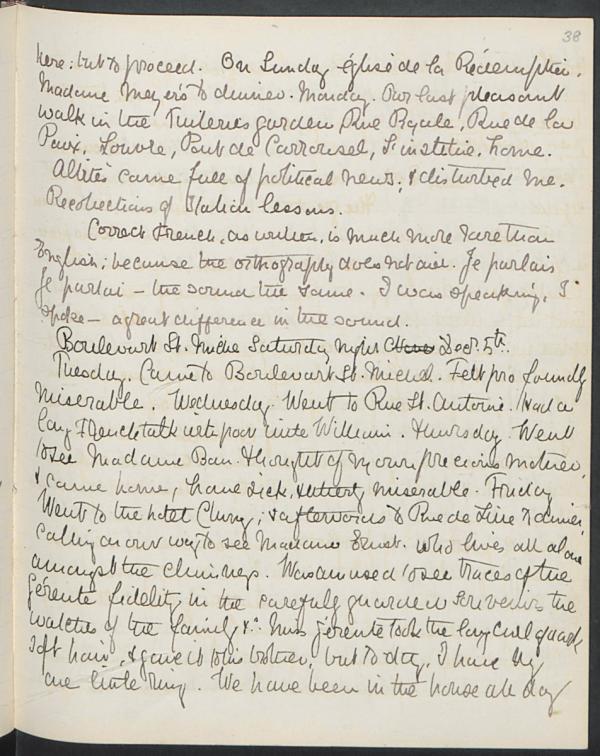 38
here: but to proceed. On Sunday église de la Rédemption.
Madame Meyer's to dinner. Monday. Our last pleasant
walk in the Tuileries garden, Rue Royale, Rue de la
Paix, Louvre, Pont de Carrousel, L'institute, home.
came full of political news; & disturbed me.
Recollections of Italian lessons.
Correct French, as written, is much more rare than
English; because the orthography does not aid. Je parlais
Je parlai – the sound the same. I was speaking, I
spoke – a great difference in the sound.
Boulevart St. Miche Saturday night Dec. 5th.
Tuesday. Came to Boulevart St. Michel. Felt profoundly
miserable. Wednesday. Went to Rue St. Antoine. Had a
long French talk with poor little William. Thursday. Went
to see Madame Bau. thought of my own precious mother,
& came home, home sick, & utterly miserable. Friday
Went to the hotel Cluny; & afterwards to Rue de Lille to dinner,
calling on our way to see Madame Ernst. who lives all alone
amongst the chimneys. Was amused to see traces of the
Gérente fidelity in the carefully guarded the
watches of the family &c. Miss Gérente took the long curl of
soft hair, & gave it to his brother, but to day, I have by
one little ring. We have been in the house all day